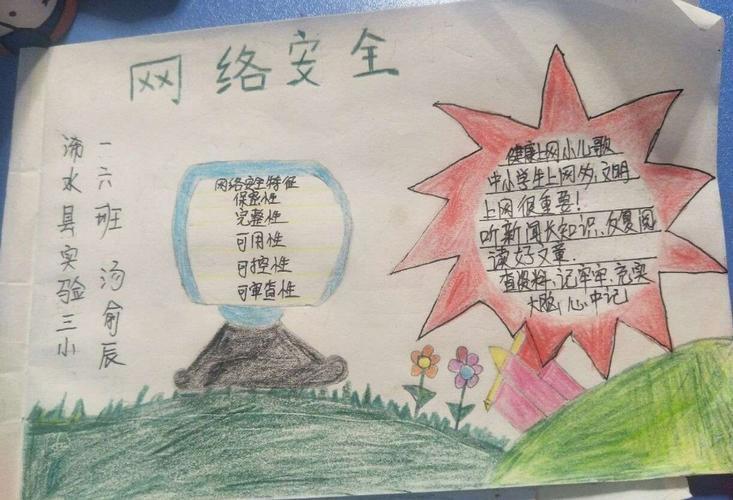 网络安全
浠水县实验三小
一六班 汤俞辰
网络安全特征
保密性
完整性
可用性
可控性
可审查性
健康上网小儿歌
中小学生上网,文明
上网很重要!
听新闻长知识,反复阅
读好文章.
查资料,记牢牢,充实
大脑,心中记